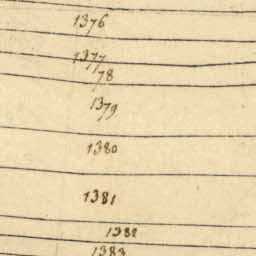 1376
1377
78
1379
1380
1381
1382
1383